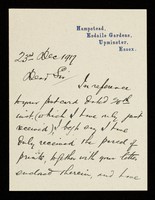 Hampstead,
Nodells Gardens,
Upminster,
Essex.
23rd Dec 1917
Dear Sir
In reference
to your post card dated 20th
inst. (which I have only just
received) I beg to say I have
duly received the parcel of
prints, together with your letter
enclosed therein, and have